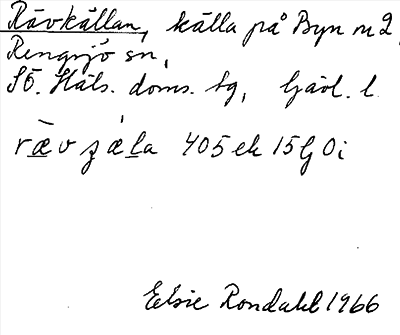 Rävkällan, källa på Byn nr 2,
Rengsjö sn,
SÖ. Häls. doms. sg, Gävl. l.
405 ek 15G 0i
Elsie Rondahl 1966